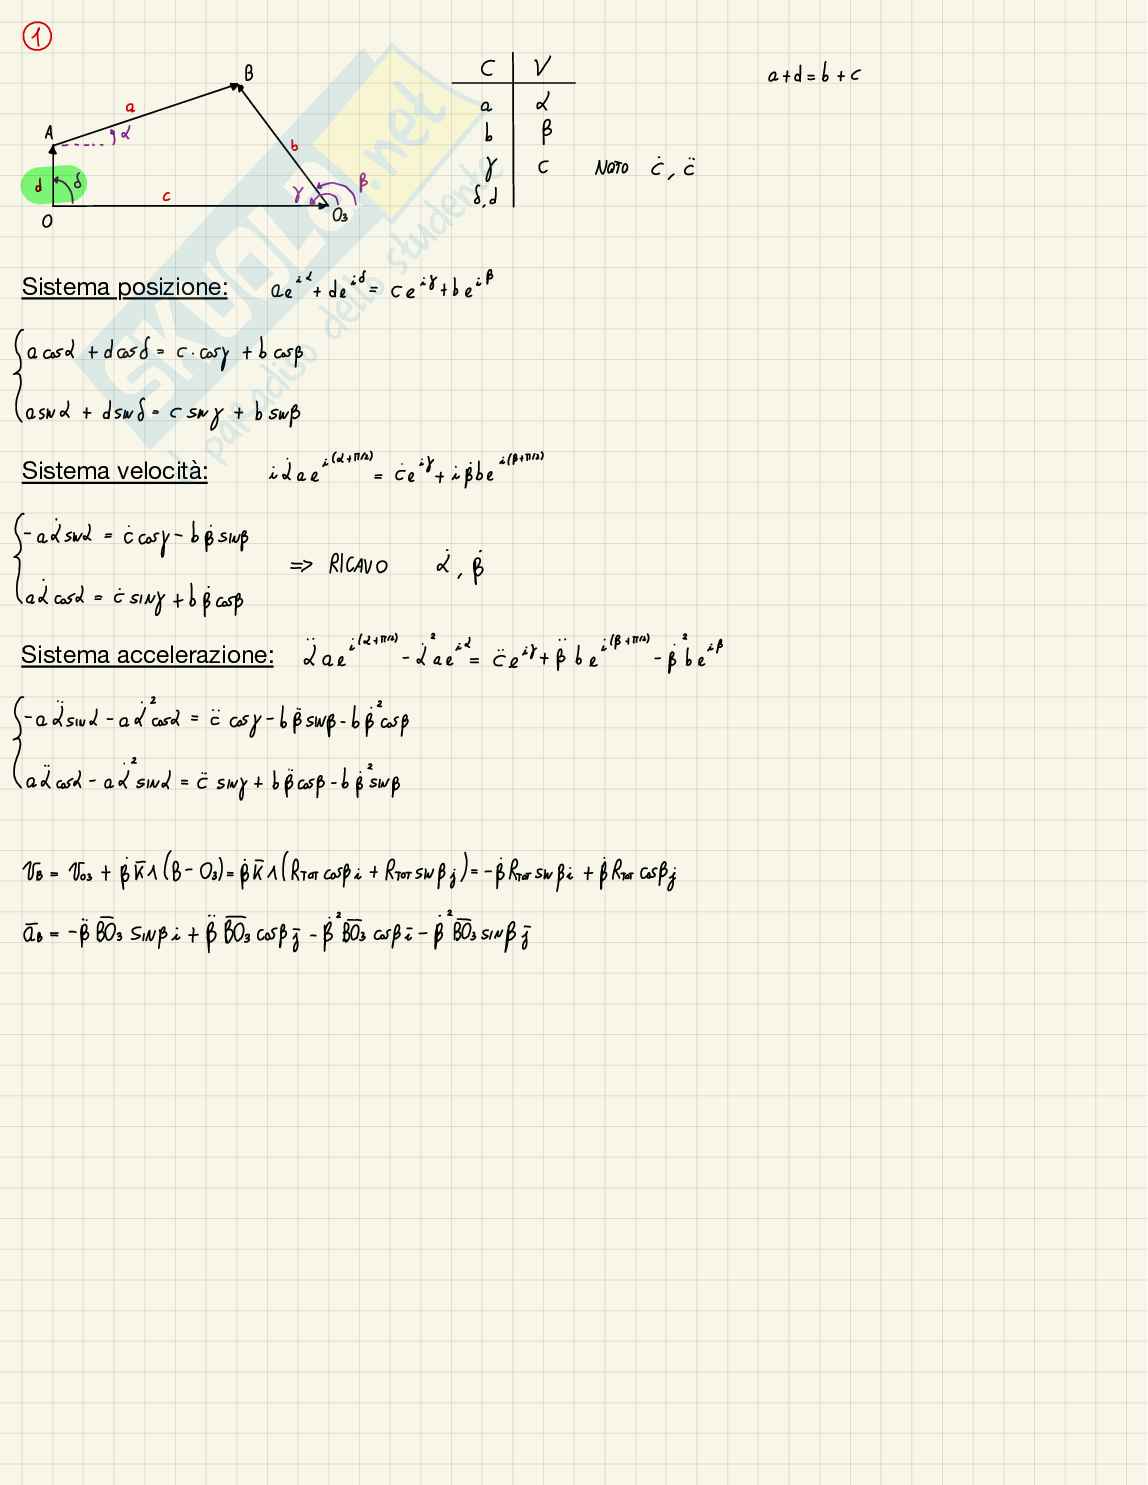 1
B
a
A
α
b
d
δ
γ
β
c
O
O₃
C | V
a | α
b | β
γ | c
δ, d
NOTO ċ, c̈
a + d = b + c
SKUOLA.net
il paradiso dello studente
Sistema posizione: ae^{iα} + de^{iδ} = ce^{iγ} + be^{iβ}
a cosα + d cosδ = c · cosγ + b cosβ
a sinα + d sinδ = c sinγ + b sinβ
Sistema velocità: i α̇ a e^{i(α+π/2)} = ċ e^{iγ} + i β̇ b e^{i(β+π/2)}
- a α̇ sinα = ċ cosγ - b β̇ sinβ
=> RICAVO α̇, β̇
a α̇ cosα = ċ sinγ + b β̇ cosβ
Sistema accelerazione: α̈ a e^{i(α+π/2)} - α̇² a e^{iα} = c̈ e^{iγ} + β̈ b e^{i(β+π/2)} - β̇² b e^{iβ}
- a α̈ sinα - a α̇² cosα = c̈ cosγ - b β̈ sinβ - b β̇² cosβ
a α̈ cosα - a α̇² sinα = c̈ sinγ + b β̈ cosβ - b β̇² sinβ
v_B = v_{O3} + β̇ k̄ ∧ (B - O₃) = β̇ k̄ ∧ (R_{TOT} cosβ i + R_{TOT} sinβ j) = - β̇ R_{TOT} sinβ i + β̇ R_{TOT} cosβ j
ā_B = - β̈ B̅O̅₃ SINβ i + β̈ B̅O̅₃ cosβ j̄ - β̇² B̅O̅₃ cosβ ī - β̇² B̅O̅₃ sinβ j̄